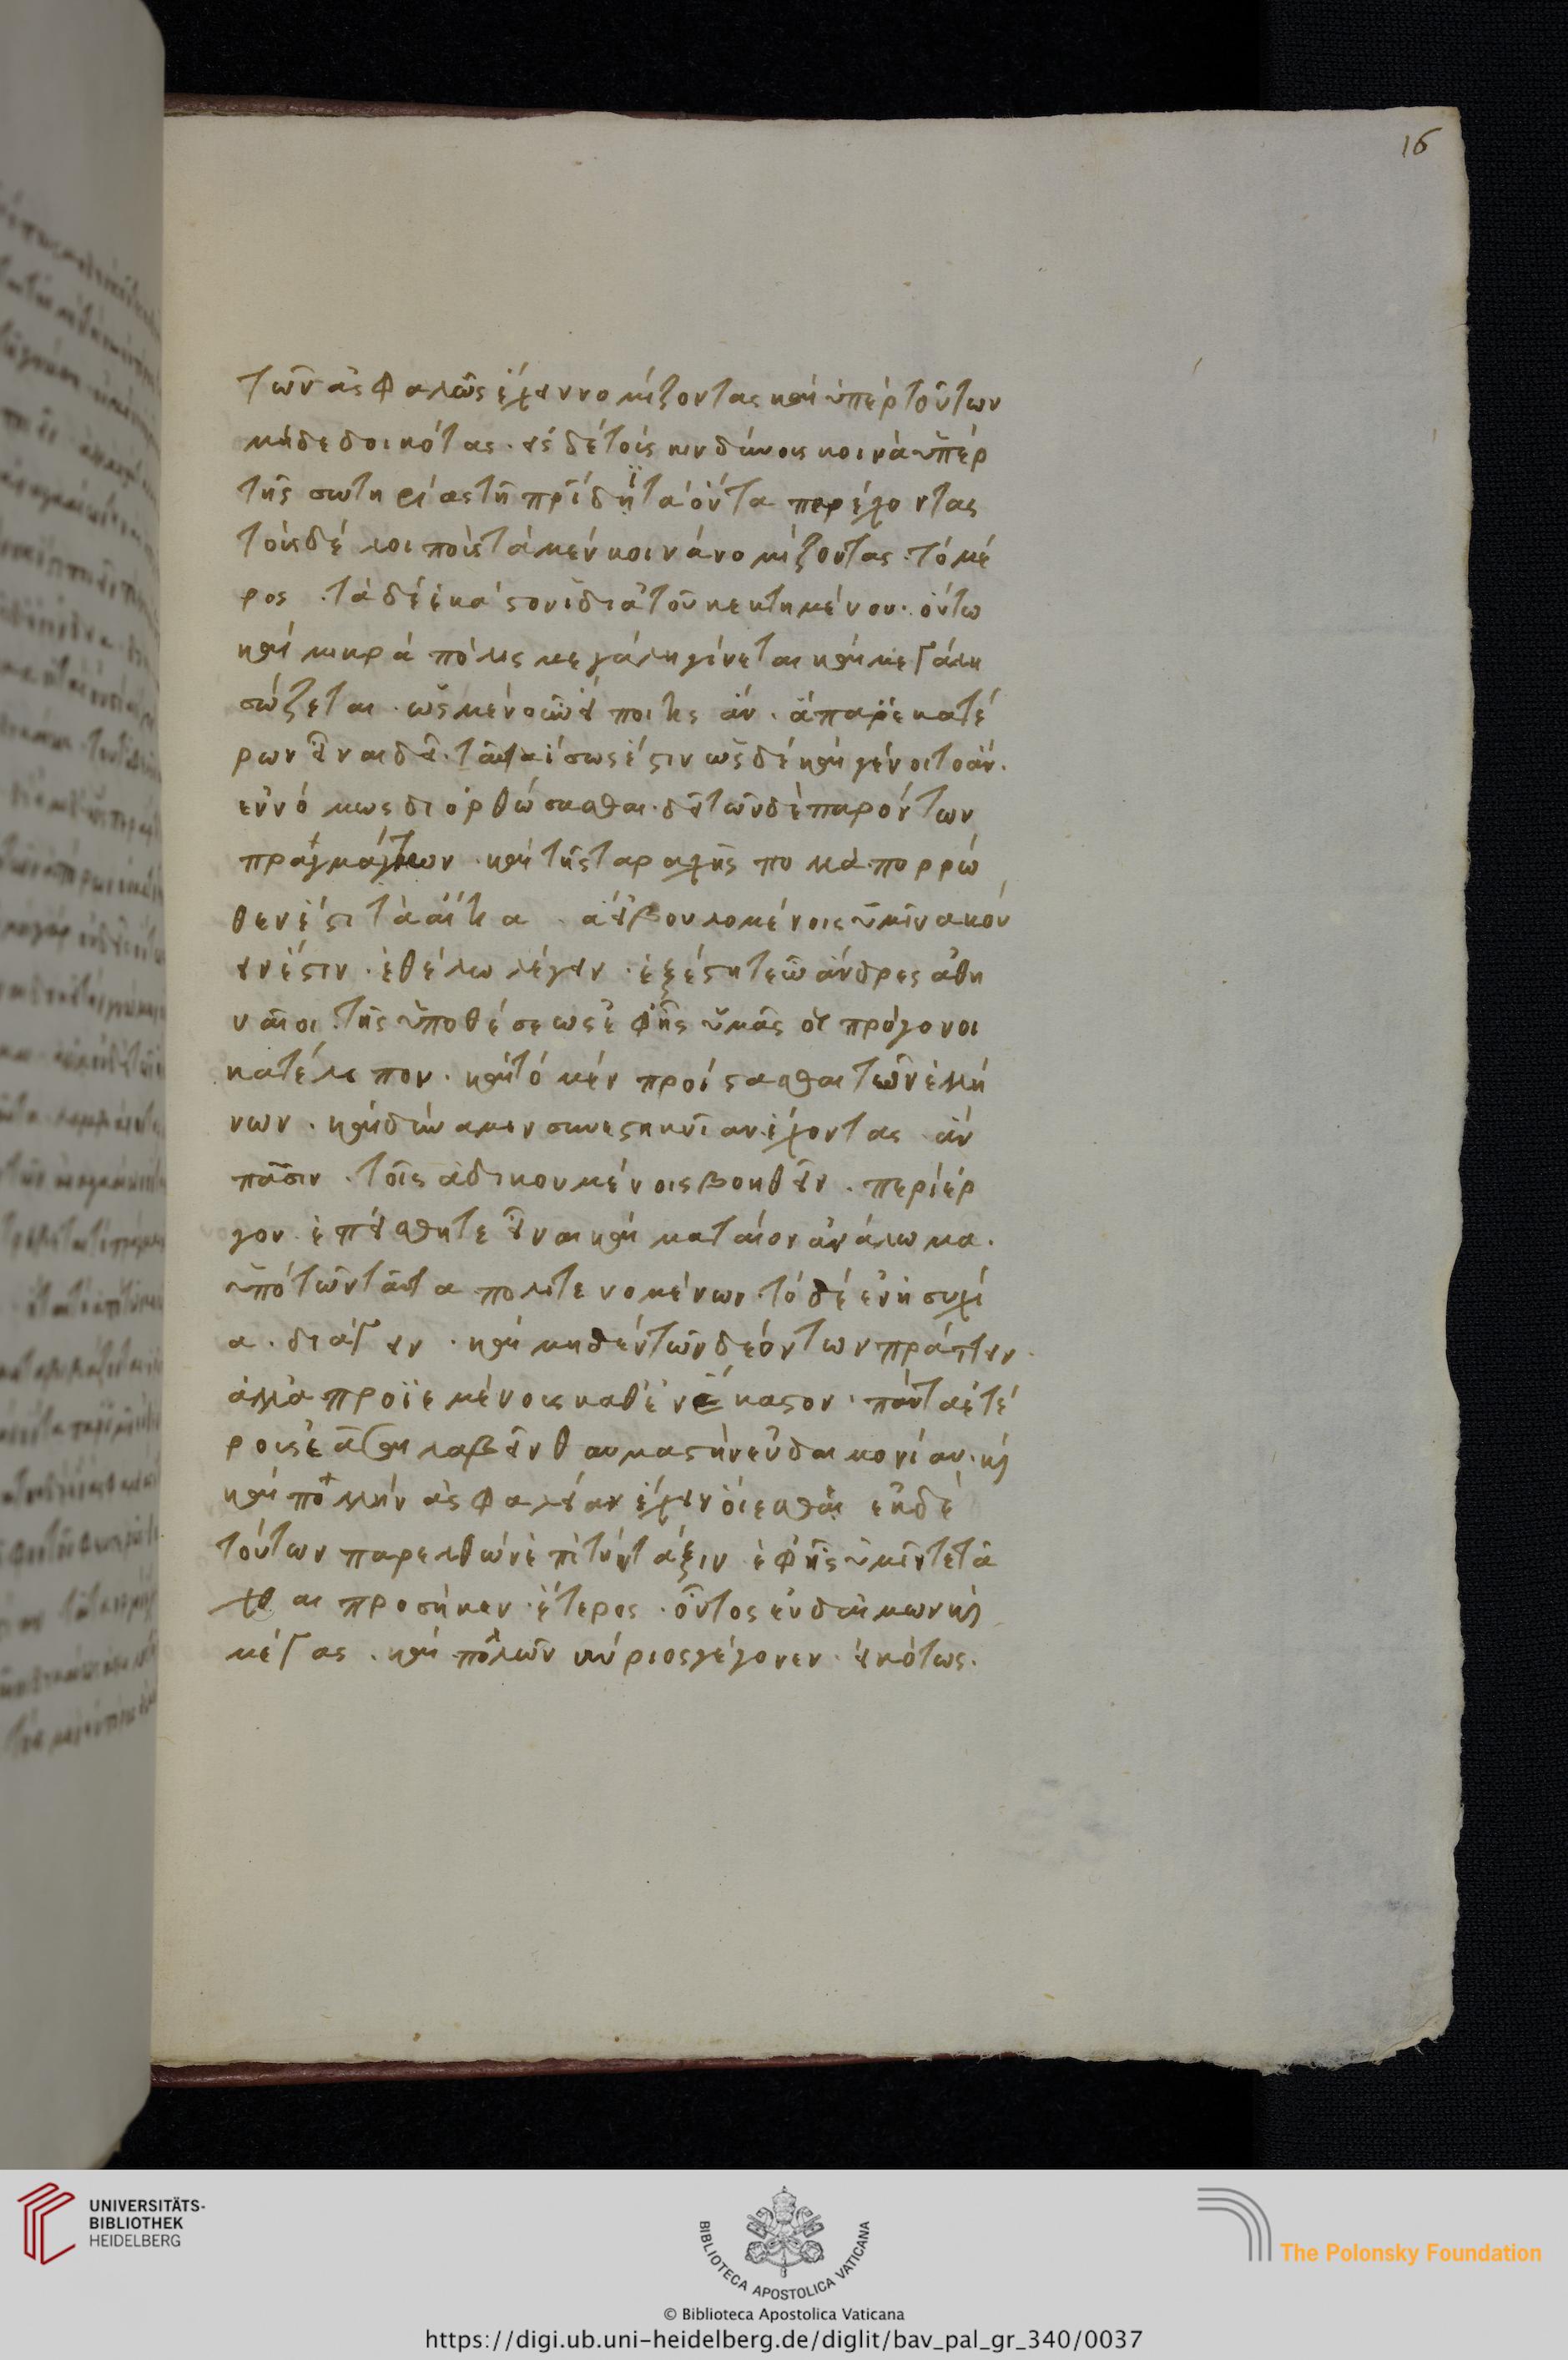 16
τῶν ἀσφαλῶς ἔχειν νομίζοντας καὶ ὑπὲρ τούτων
μὴ δεδοικότας. εἰς δὲ τοὺς κινδύνους κοινὰ ὑπὲρ
τῆς σωτηρίας τῇ πρίδι τὰ ὄντα παρέχοντας
τοὺς δὲ λοιποὺς τὰ μὲν κοινὰ νομίζοντας. τὸ μέ
ρος. τὰ δὲ ἑκάστου ἴδια τοῦ κεκτημένου. οὕτω
καὶ μικρὰ πόλις μεγάλη γίνεται καὶ μεγάλη
σώζεται. ὡς μὲν οὖν εἴποι τις ἂν. ἃ παρ' ἑκατέ
ρων εἶναι δεῖ. ταῦτα ἴσως ἐστιν ὡς δὲ καὶ γένοιτο ἂν.
ἐννόμως διορθώσασθαι δεῖ τῶν δὲ παρόντων
πραγμάτων. καὶ τῆς ταραχῆς πολλὰ πορρώ
θεν ἐστὶ τὰ αἴτια. ἃ εἰ βουλομένοις ὑμῖν ἀκού
ειν ἐστιν. ἐθέλω λέγειν. ἐξέστητε ὦ ἄνδρες ἀθη
ναῖοι. τῆς ὑποθέσεως ἐφ' ἧς ὑμᾶς οἱ πρόγονοι
κατέλιπον. καὶ τὸ μὲν προίστασθαι τῶν ἑλλή
νων. καὶ δύναμιν συνεστηκυῖαν ἔχοντας ἂν
πᾶσιν. τοῖς ἀδικουμένοις βοηθεῖν. περίερ
γον ἐπείσθητε εἶναι καὶ μάταιον ἀνάλωμα.
ὑπὸ τῶν ταῦτα πολιτευομένων. τὸ δὲ ἐν ἡσυχί
α. διάγειν. καὶ μηδὲν τῶν δεόντων πράττειν.
ἀλλὰ προϊεμένοις καθ' ἓν ἕκαστον. πάντα ἑτέ
ροις ἐᾶσαι λαβεῖν θαυμαστὴν εὐδαιμονίαν. καὶ
καὶ πολλὴν ἀσφάλειαν ἔχειν οἴεσθαι ἐκ δὲ
τούτων παρελθὼν ἐπὶ τὴν τάξιν ἐφ' ἧς ὑμῖν τετά
χθαι προσῆκεν. ἕτερος. οὗτος εὐδαίμων καὶ
μέγας. καὶ πολλῶν κύριος γέγονεν. εἰκότως.
UNIVERSITÄTS-
BIBLIOTHEK
HEIDELBERG
BIBLIOTECA APOSTOLICA VATICANA
The Polonsky Foundation
© Biblioteca Apostolica Vaticana
https://digi.ub.uni-heidelberg.de/diglit/bav_pal_gr_340/0037